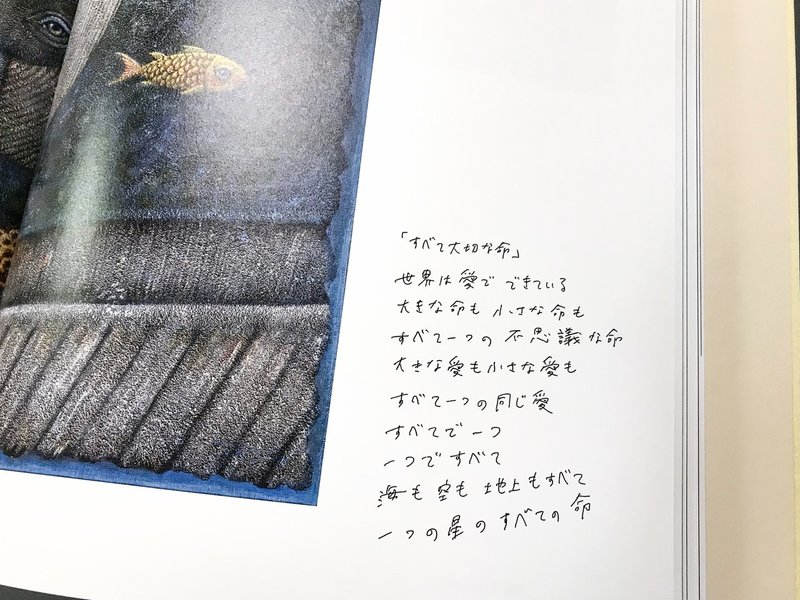 「すべて大切な命」
世界は愛で できている
大きな命も 小さな命も
すべて一つの 不思議な命
大きな愛も小さな愛も
すべて一つの同じ愛
すべてで一つ
一つですべて
海も 空も 地上もすべて
一つの星の すべての 命